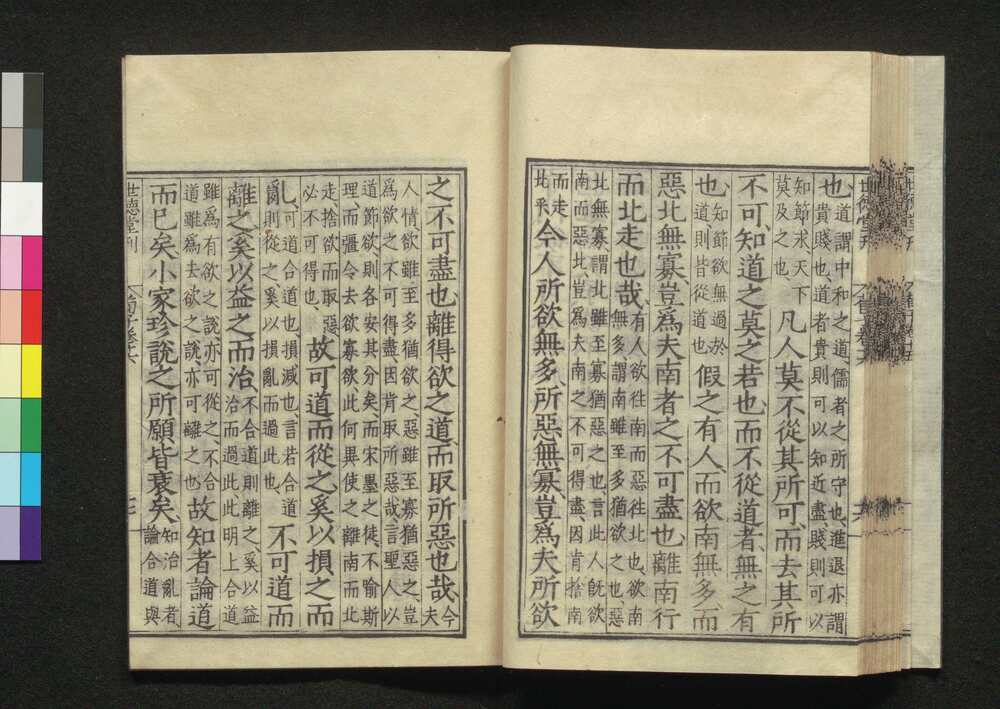 也道謂中和之道儒者之所守也進退亦謂
貴賤也道者貴則可以知近盡賤則可以
知節求天下
莫及之也
凡人莫不從其所可而去其所
不可知道之莫之若也而不從道者無之有
也知節欲無過於
道則皆從道也
假之有人而欲南無多而
惡北無寡豈爲夫南者之不可盡也離南行
而北走也哉有人欲往南而惡往北也欲南
無多謂南雖至多猶欲之也惡
北無寡謂北雖至寡猶惡之也言此人旣欲
南而惡北豈爲夫南之不可得盡因肯捨南
而走
北乎
今人所欲無多所惡無寡豈爲夫所欲
之不可盡也離得欲之道而取所惡也哉今
夫
人情欲雖至多猶欲之惡雖至寡猶惡之豈
爲欲之不可得盡因肯取所惡哉言聖人以
道節欲則各安其分矣而宋墨之徒不喻斯
理而彊令去欲寡欲此何異使之離南而北
走捨欲而取惡
必不可得也
故可道而從之奚以損之而
亂可道合道也損減也言若合道
則從之奚以損亂而過此也
不可道而
離之奚以益之而治不合道則離之奚以益
治而過此此明上合道
雖爲有欲之說亦可從之不合
道雖爲去欲之說亦可離之也
故知者論道
而已矣小家珍說之所願皆衰矣知治亂者
論合道與
世德堂刊